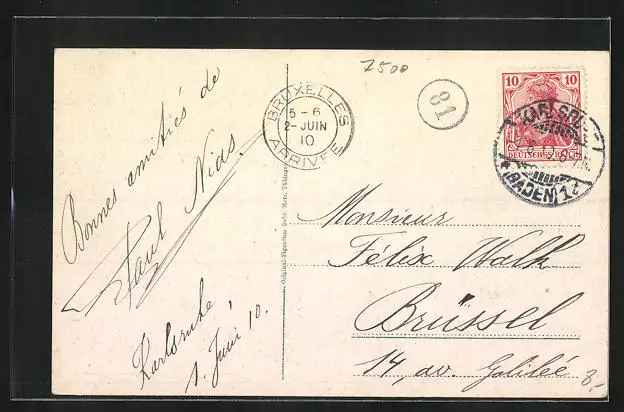 7500
BRUXELLES
5-6
2-JUIN
10
ARRIVÉE
81
10 10
DEUTSCHES REICH
KARLSRUHE
BADEN 1
Bonnes amitiés de
Paul Nids.
Karlsruhe,
1. Juni 10.
Monsieur
Félix Walk
Brüssel
14, av. Galilée
3,-